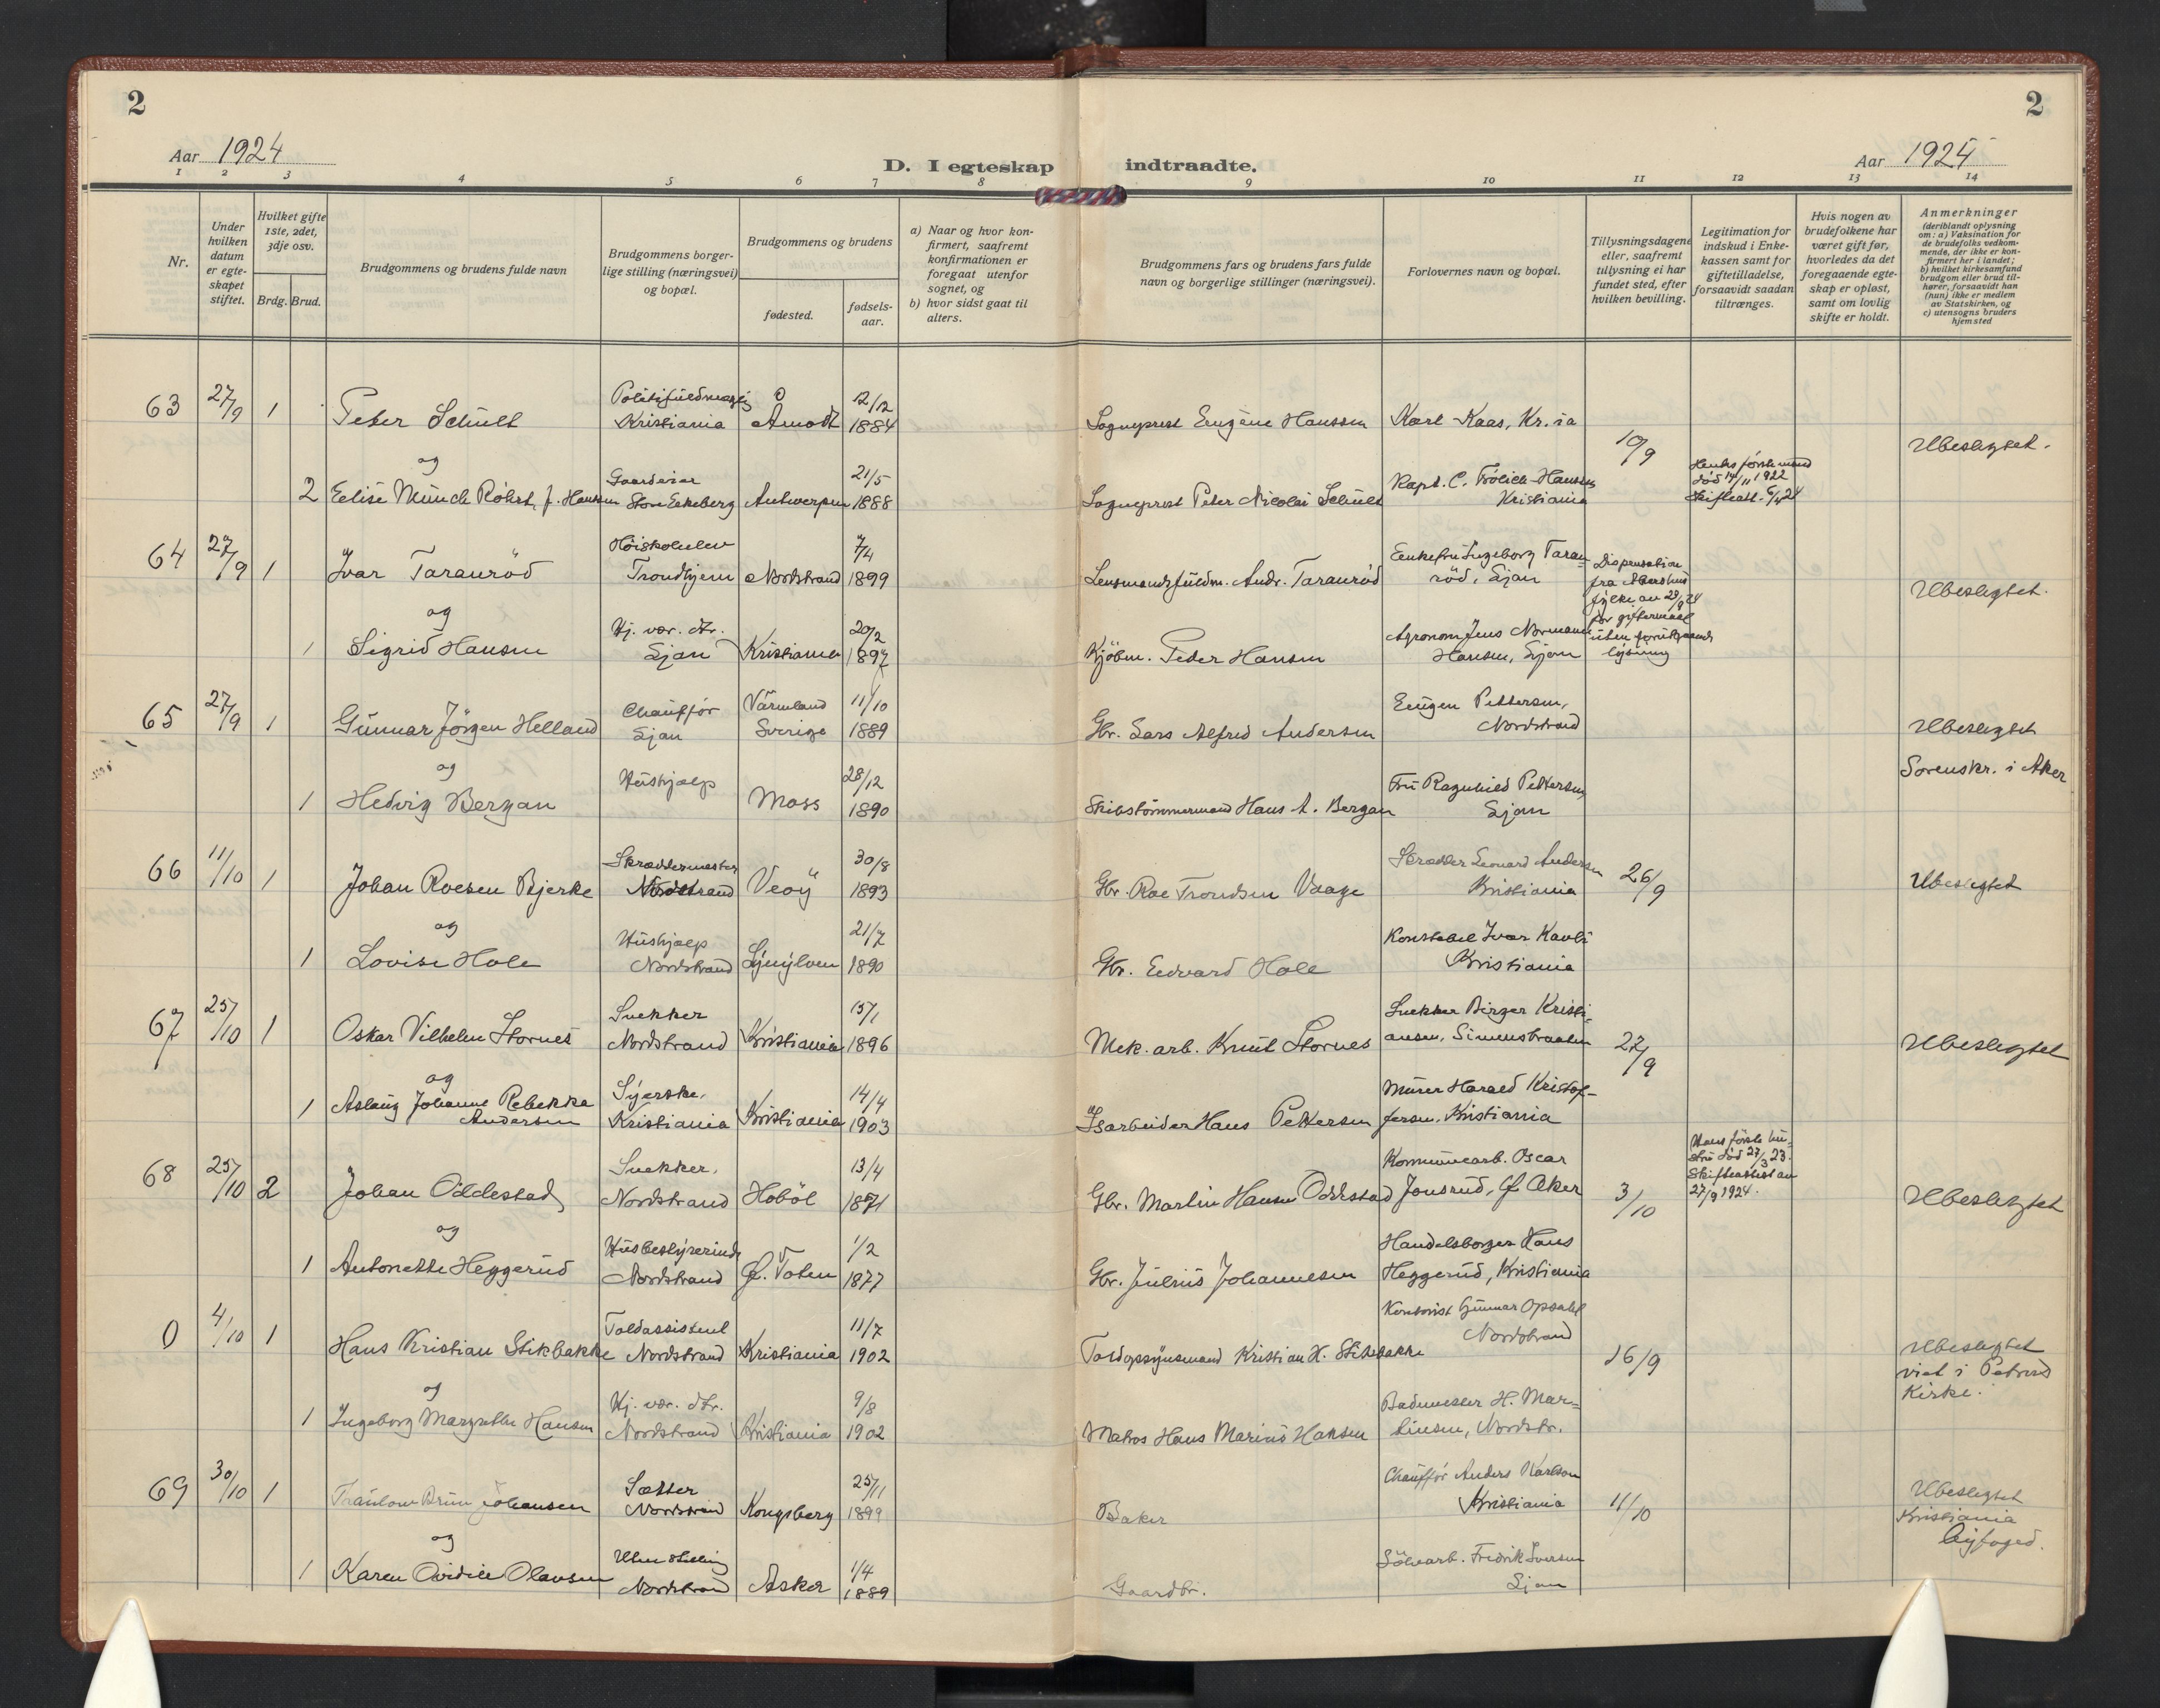 2
2
Aar 1924
D. I egteskap indtraadte.
Aar 1924
1 2 3 4 5 6 7 8 9 10 11 12 13 14
Nr.
Under hvilken datum er egteskapet stiftet.
Hvilket gifte 1ste, 2det, 3dje osv.
Brdg. Brud.
Brudgommens og brudens fulde navn
Brudgommens borgerlige stilling (næringsvei) og bopæl.
Brudgommens og brudens
fødested.
fødselsaar.
a) Naar og hvor konfirmert, saafremt konfirmationen er foregaat utenfor sognet, og
b) hvor sidst gaat til alters.
Brudgommens fars og brudens fars fulde navn og borgerlige stillinger (næringsvei).
Forlovernes navn og bopæl.
Tillysningsdagene eller, saafremt tillysning ei har fundet sted, efter hvilken bevilling.
Legitimation for indskud i Enkekassen samt for giftetilladelse, forsaavidt saadan tiltrænges.
Hvis nogen av brudefolkene har været gift før, hvorledes da det foregaaende egteskap er opløst, samt om lovlig skifte er holdt.
Anmerkninger (deriblandt oplysning om: a) Vaksination for de brudefolks vedkommende, der ikke er konfirmert her i landet; b) hvilket kirkesamfund brudgom eller brud tilhører, forsaavidt han (hun) ikke er medlem av Statskirken, og c) utensogns bruders hjemsted
63 27/9 1 Peter Schult Politifuldmægtig Kristiania Åmodt 12/12 1884 Sogneprest Eugène Hanssen Karl Kaas, Kr.ia 19/9 Ubeslegtet.
og
2 Elise Munch Röhrt, f. Hanssen Gaardeier Store Ekeberg Antwerpen 21/5 1888 Sogneprest Peter Nicolai Schult Kapt. C. Frölich-Hanssen Kristiania Hendes förste mand död 14/11 1922 Skifteatt.
64 27/9 1 Ivar Taraurød Höiskoleelev Trondhjem Nordstrand 7/4 1899 Lensmandsfuldm. Andr. Taraurød Enkefru Ingeborg Taraurød, Ljan Dispensation fra Akershus fylke av 23/9 24 for giftermaal uten forutgaaende lysning Ubeslegtet.
og
1 Sigrid Hansen Hj. vær. dtr. Ljan Kristiania 20/2 1897 Kjöbm. Peder Hansen Agronom Jens Normann Hansen, Ljan
65 27/9 1 Gunnar Jörgen Helland Chaufför Ljan Värmland Sverige 11/10 1889 Gbr. Lars Alfred Andersen Eugen Pettersen, Nordstrand Ubeslegtet
og
1 Hedvig Bergan Hushjælp Moss 28/12 1890 Skibstömmermand Hans A. Bergan Fru Ragnhild Pettersen Ljan Sorenskr. i Aker
66 11/10 1 Johan Roesen Bjerke Skræddermester Nordstrand Veøy 30/8 1893 Gbr. Roe Trondsen Vaage Skrædder Leonard Andersen Kristiania 26/9 Ubeslegtet
og
1 Lovise Hole Hushjælp Nordstrand Sunylven 21/7 1890 Gbr. Edvard Hole Konstabel Ivar Kavli Kristiania
67 25/10 1 Oskar Vilhelm Stornes Snekker Nordstrand Kristiania 15/1 1896 Mek. arb. Knut Stornes Snekker Birger Kristiansen, Simensbraaten 27/9 Ubeslegtet
og
1 Aslaug Johanne Rebekka Andersen Syerske, Kristiania Kristiania 14/4 1903 Isarbeider Hans Pettersen Murer Harald Kristoffersen, Kristiania
68 25/10 2 Johan Oddestad Snekker, Nordstrand Hobøl 13/4 1871 Gbr. Martin Hansen Oddestad Kommunearb. Oscar Jonsrud, Ø. Aker 3/10 Hans förste hustru död 27/3 23. Skifteattest av 27/9 1924. Ubeslegtet
og
1 Antonette Heggerud Husbestyrerinde Nordstrand Ø. Toten 1/2 1877 Gbr. Julius Johannesen Handelsborger Hans Heggerud, Kristiania
0 4/10 1 Hans Kristian Stikbakke Toldassistent Nordstrand Kristiania 11/7 1902 Toldopsynsmand Kristian H. Stikbakke Kontorist Gunnar Opsahl Nordstrand 16/9 Ubeslegtet viet i Petrus Kirke.
og
1 Ingeborg Margrethe Hansen Hj. vær. dtr. Nordstrand Kristiania 9/8 1902 Matros Hans Marius Hansen Bademester H. Martinsen, Nordstr.
69 30/10 1 Traulow Brun Johansen Sætter Nordstrand Kongsberg 25/11 1899 Baker Chauffør Anders Karlson Kristiania 11/10 Ubeslegtet Kristiania Byfoged.
og
1 Karen Olavsen Uten stilling Nordstrand Asker 1/4 1889 Gaardbr. Sölvarb. Fredrik Iversen Ljan